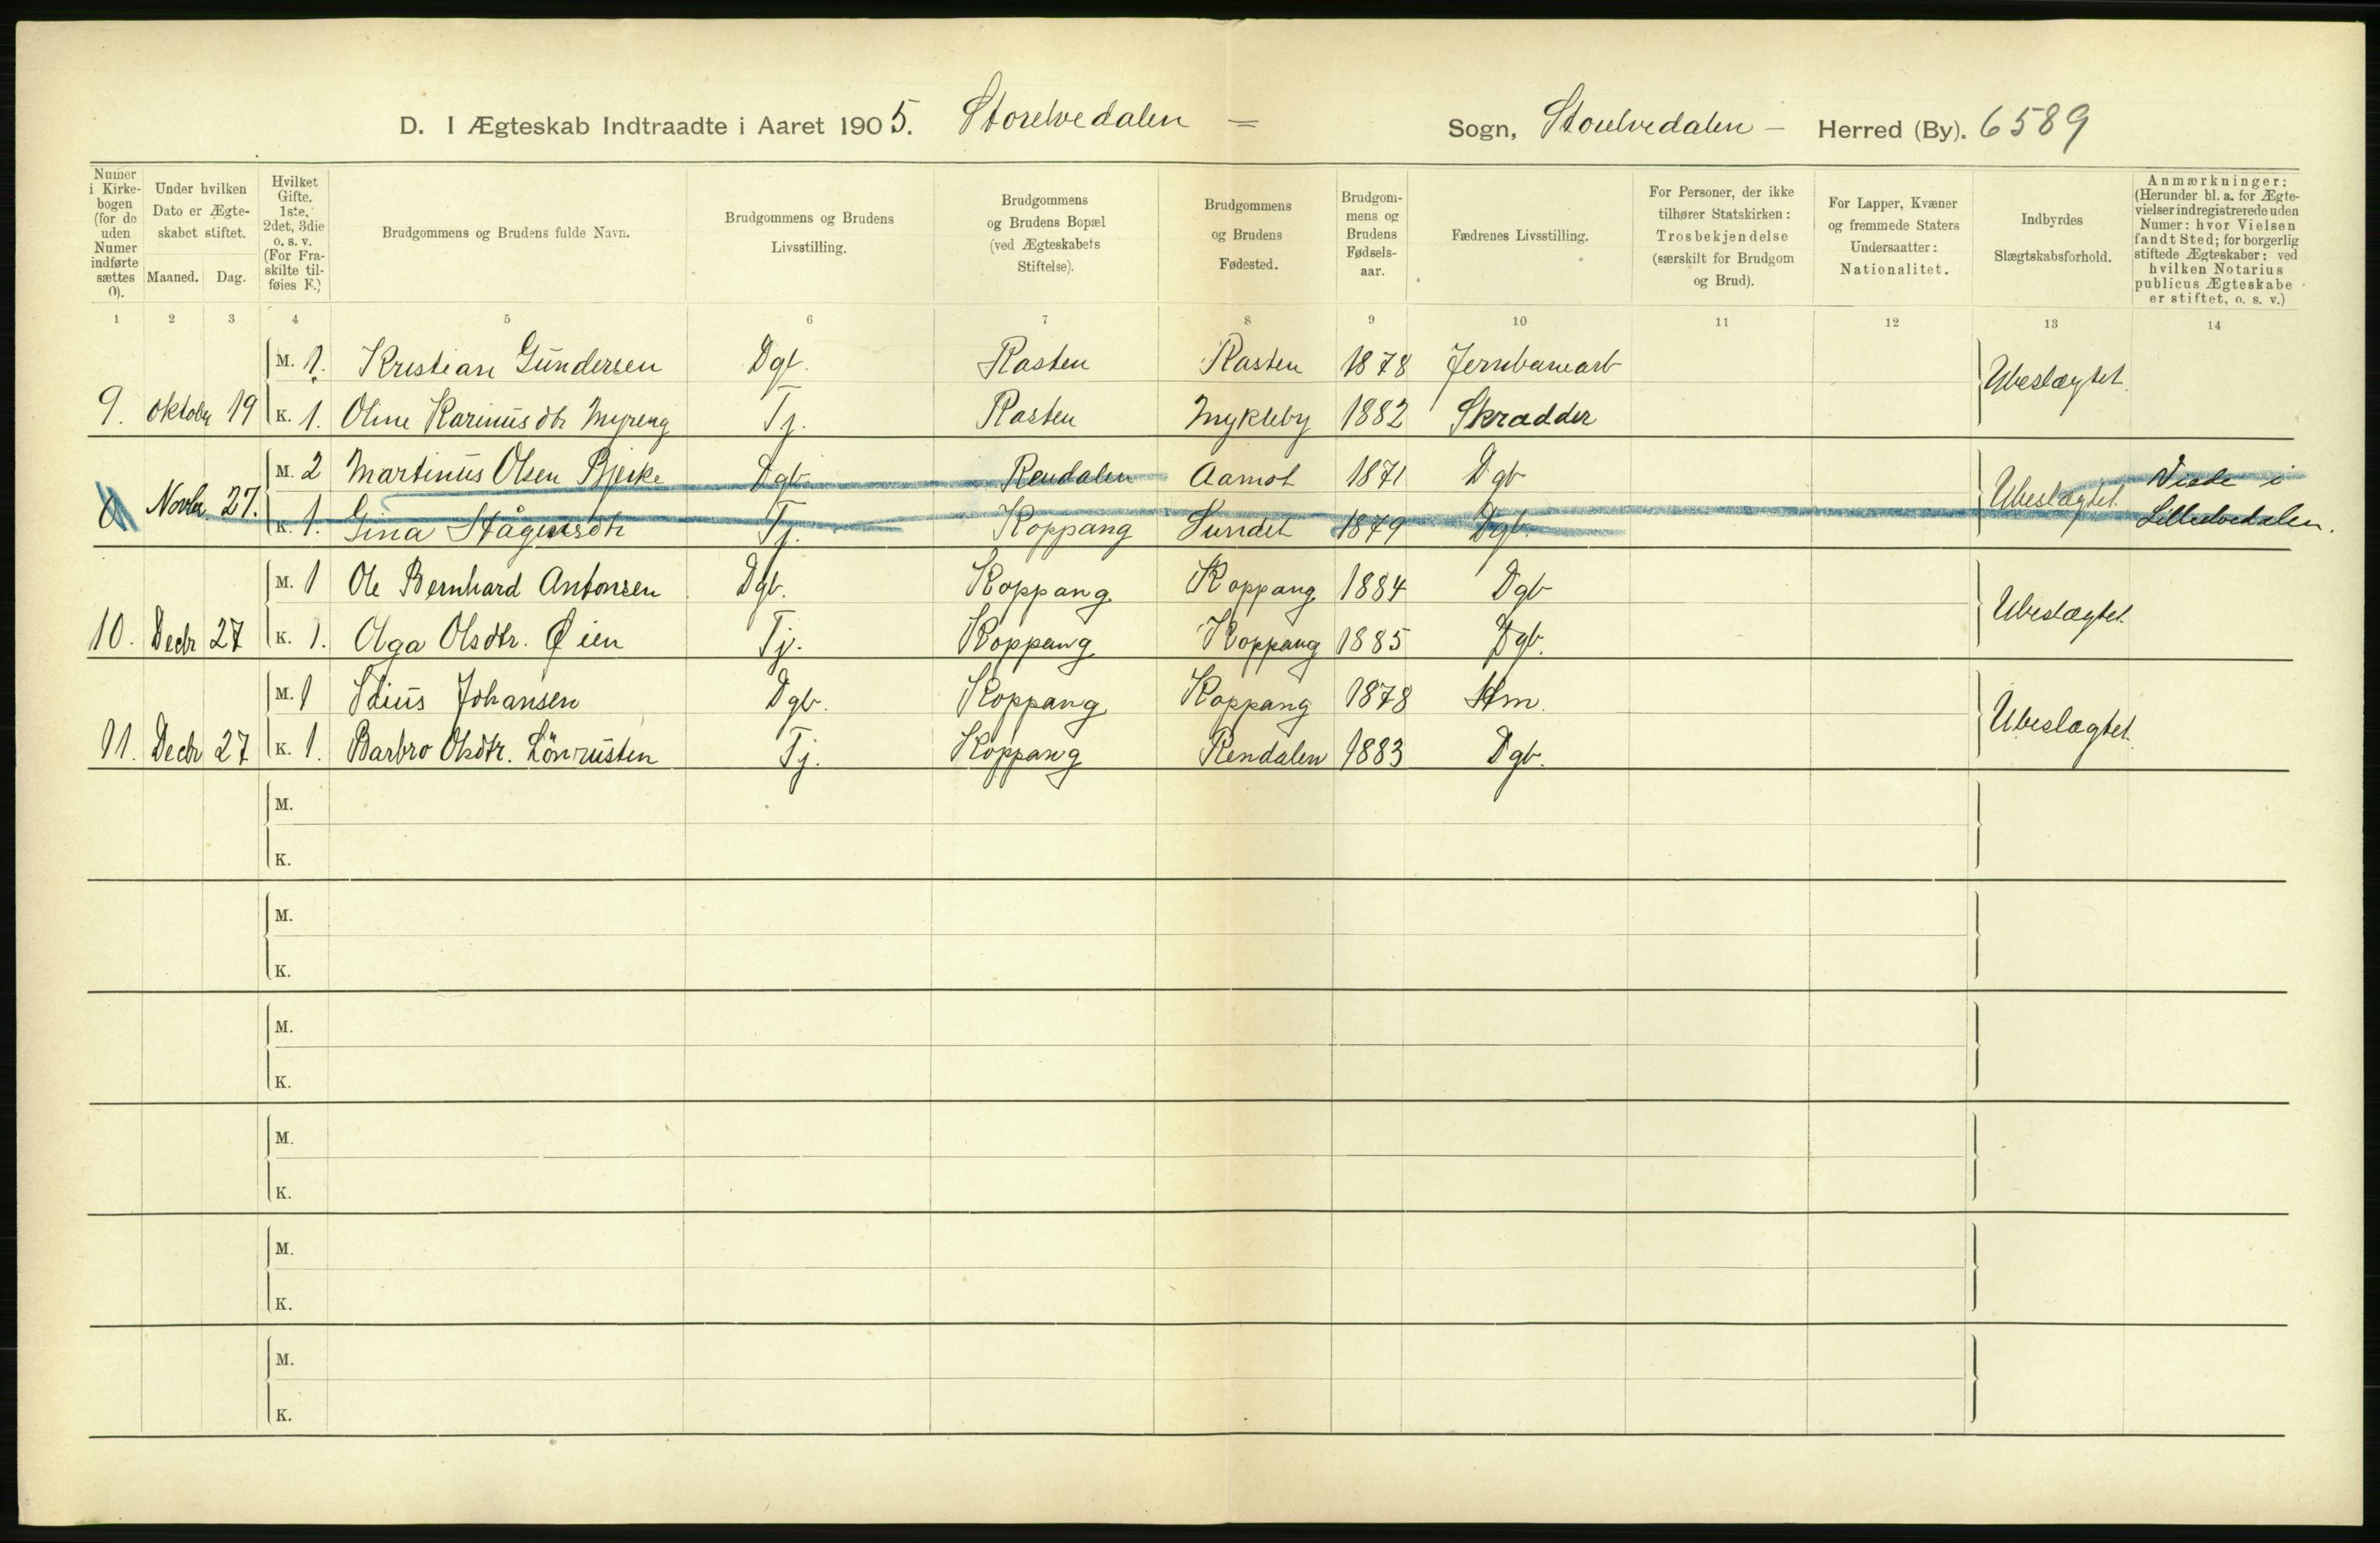 D. I Ægteskab Indtraadte i Aaret 1905. Storelvedalen = Sogn, Storelvedalen – Herred (By). 6589
Numer i Kirke-bogen (for de uden Numer indførte sættes 0).
Under hvilken Dato er Ægte-skabet stiftet.
Maaned. Dag.
Hvilket Gifte. 1ste, 2det, 3die o. s. v. (For Fra-skilte til-føies F.)
Brudgommens og Brudens fulde Navn.
Brudgommens og Brudens Livsstilling.
Brudgommens og Brudens Bopæl (ved Ægteskabets Stiftelse).
Brudgommens og Brudens Fødested.
Brudgom-mens og Brudens Fødsels-aar.
Fædrenes Livsstilling.
For Personer, der ikke tilhører Statskirken: Trosbekjendelse (særskilt for Brudgom og Brud).
For Lapper, Kvæner og fremmede Staters Undersaatter: Nationalitet.
Indbyrdes Slægtskabsforhold.
Anmærkninger: (Herunder bl. a. for Ægte-vielser indregistrerede uden Numer: hvor Vielsen fandt Sted; for borgerlig stiftede Ægteskaber: ved hvilken Notarius publicus Ægteskabe er stiftet, o. s. v.)
1 2 3 4 5 6 7 8 9 10 11 12 13 14
M. 1. Kristian Gundersen Dgb. Rasten Rasten 1878 Jernbanearb Ubeslægtet.
9. Oktober 19 K. 1. Oline Karinusdtr Myreng Tj. Rasten Mykleby 1882 Skrædder
M. 2 Martinus Olsen Bjerke Dgb. Rendalen Aamot 1871 Dgb Ubeslægtet Viede i
0 Novbr. 27. K. 1. Gina Hågensdtr Tj. Koppang Sundet 1879 Dgb. Lilleelvedalen.
M. 1 Ole Bernhard Antonsen Dgb. Koppang Koppang 1884 Dgb Ubeslægtet.
10. Decbr 27 K. 1. Olga Olsdtr. Øien Tj. Koppang Koppang 1885 Dgb.
M. 1 Idius Johansen Dgb. Koppang Koppang 1878 Hm. Ubeslægtet.
11. Decbr 27 K. 1. Barbro Olsdtr. Lönrusten Tj. Koppang Rendalen 1883 Dgb.
M.
K.
M.
K.
M.
K.
M.
K.
M.
K.
M.
K.